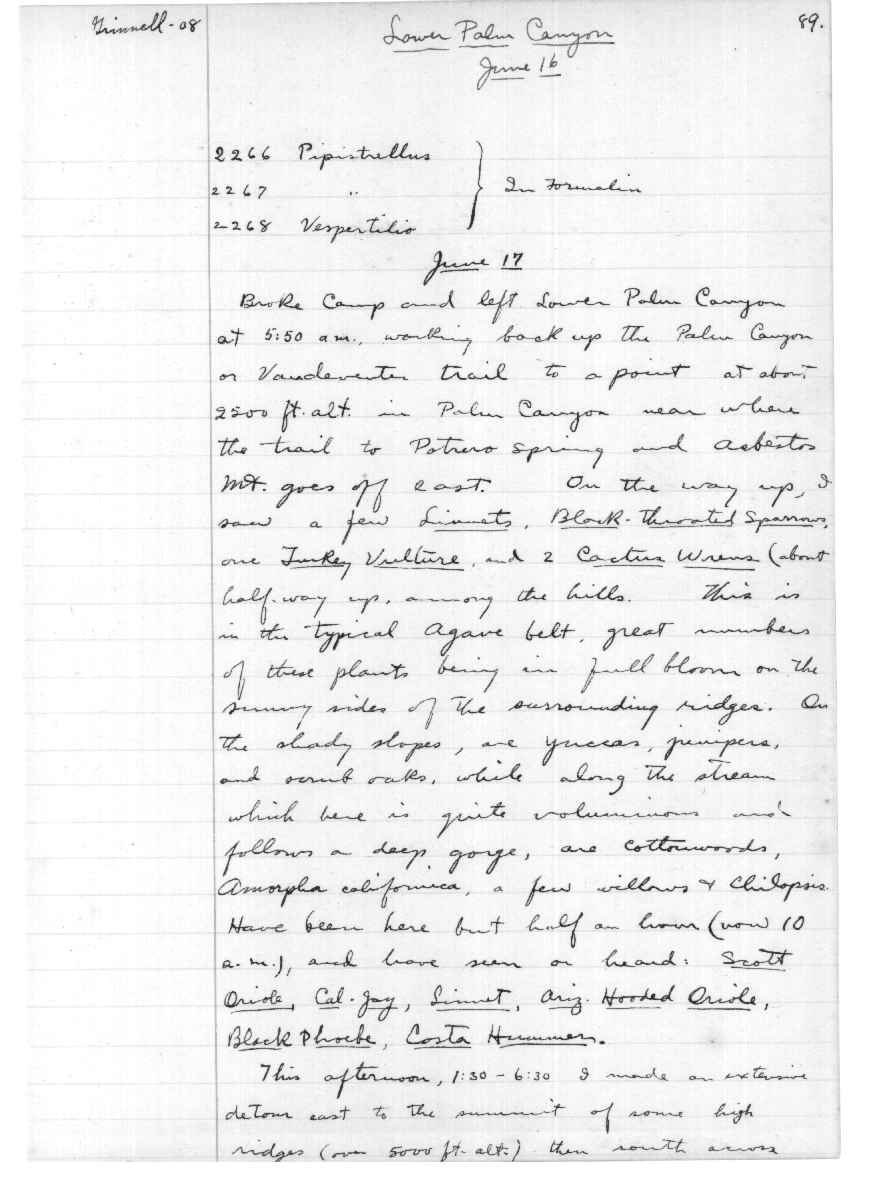 Grinnell-08
89.
Lower Palm Canyon
June 16
2266 Pipistrellus
2267 "
2268 Vespertilio
} In Formalin
June 17
Broke Camp and left Lower Palm Canyon
at 5:50 a.m., working back up the Palm Canyon
or Vandeventer trail to a point at about
2500 ft. alt. in Palm Canyon near where
the trail to Potrero Spring and Asbestos
Mt. goes off east. On the way up, I
saw a few Linnets, Black-throated Sparrows,
one Turkey Vulture, and 2 Cactus Wrens (about
half-way up, among the hills. This is
in the typical Agave belt, great numbers
of these plants being in full bloom on the
sunny sides of the surrounding ridges. On
the shady slopes, are yuccas, junipers,
and scrub oaks, while along the stream
which here is quite voluminous and
follows a deep gorge, are cottonwoods,
Amorpha californica, a few willows & Chilopsis.
Have been here but half an hour (now 10
a.m.), and have seen or heard: Scott
Oriole, Cal. Jay, Linnet, Ariz. Hooded Oriole,
Black Phoebe, Costa Hummer.
This afternoon, 1:30 - 6:30 I made an extensive
detour east to the summit of some high
ridges (over 5000 ft. alt.) then south across